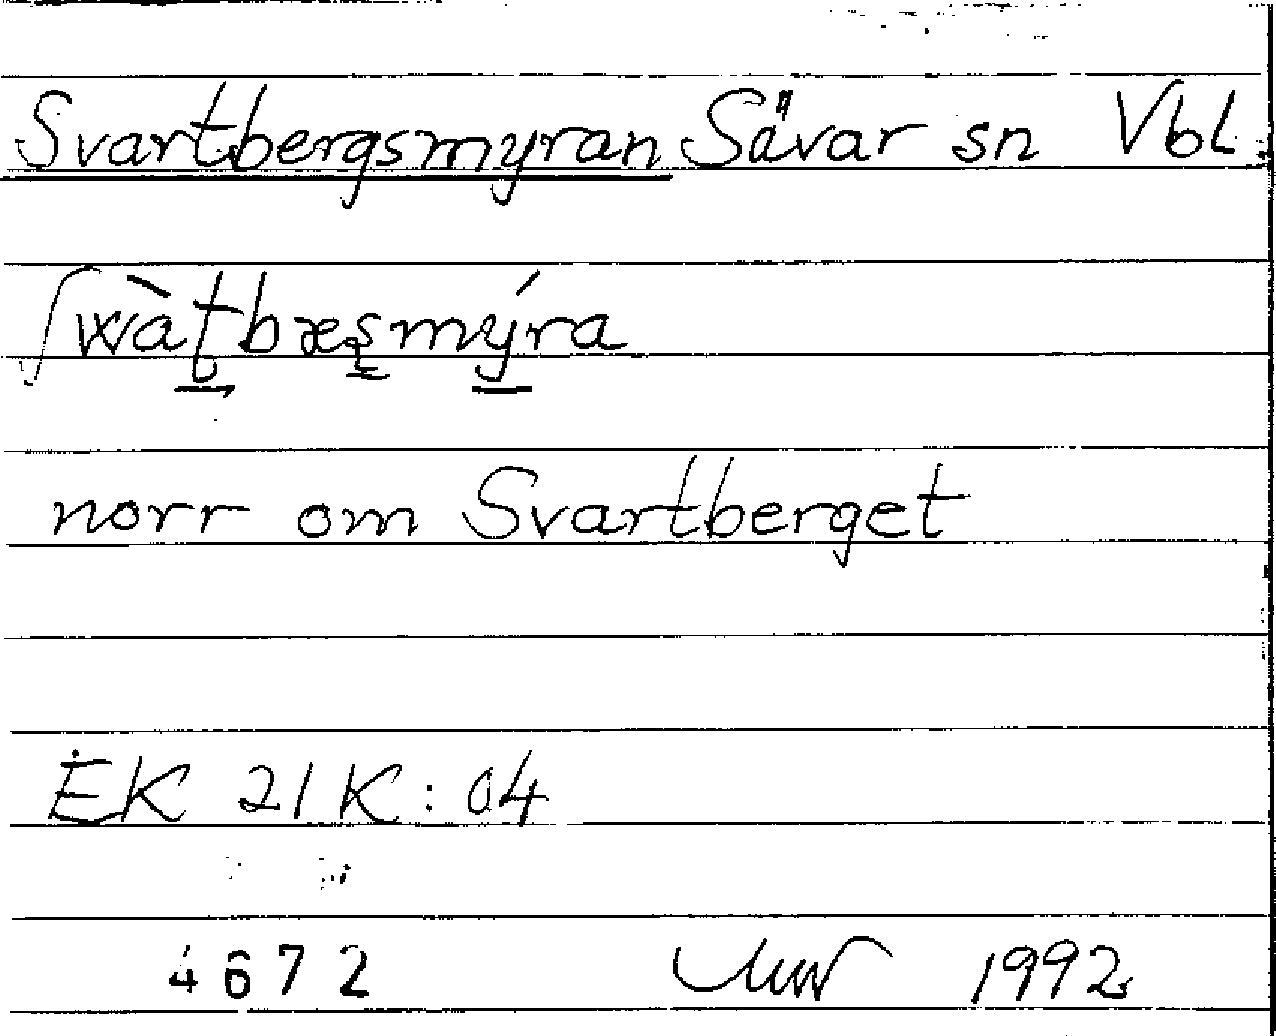 Svartbergsmyran Sävar sn Vbl.
ʃwàʈbæʂmýra
norr om Svartberget
EK 21K:04
4672 1992